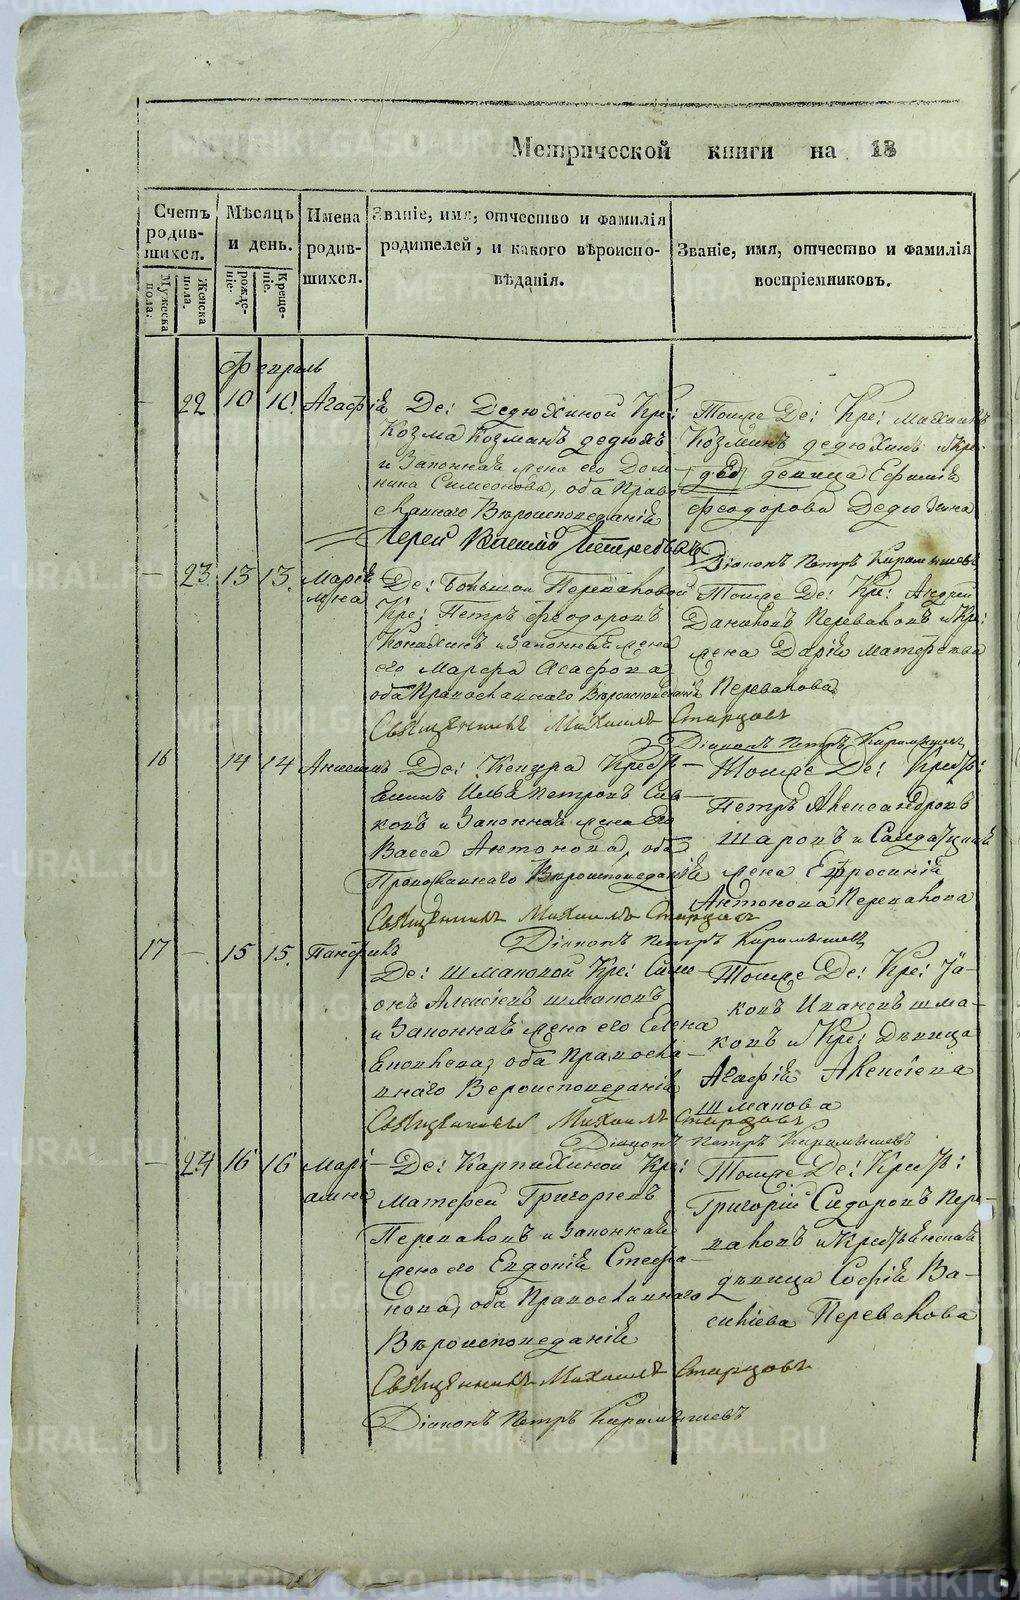 Метрической книги на 18
Счетъ родив- шихся.
Мужеска пола.
Женска пола.
Мѣсяцъ и день.
рожде- ніе.
Креще- ніе.
Имена родив- шихся.
Званіе, имя, отчество и фамилія
родителей, и какого вѣроиспо-
вѣданія.
Званіе, имя, отчество и фамилія
воспріемниковъ.
Февраль
— 22 10 10. Агафія
Де: Дедюхиной Кре:
Козма Козминъ дедюхъ
и Законная жена его Дом
ника Симеонова, оба Право
славнаго Вѣроисповеданія
Іерей Василій
Тоижъ Де: Кре: михаилъ
Козминъ дедюхинъ и Кре:
дѣд девица Ефимія
феодорова Дедюхина
Діаконъ Петръ Кирамышевъ
— 23. 13 13. Марія
мна
Де: Большой Переваловой
Кре: Петръ феодоровъ
и Законная жена
его Марфа Агафова
оба Православнаго Вѣроисповеданія
Священникъ Михаилъ Старцовъ
Тоижъ Де: Кре: Андрей
Даниловъ Переваловъ и Кре:
жена Дарія Матфеева
Перевалова
Діаконъ Петръ Кирамышевъ
16 14 14
Де: Кенцура Крестъ-
янинъ Илья Петровъ Сав-
ковъ и Законная жена Его
Васса Антонова, оба
Православнаго Вѣроисповеданія
Священникъ Михаилъ Старцовъ
Тоижъ Де: Крестъ:
Петръ Александровъ
шаровъ и Салдатцкая
жена Ефросинія
Антонова Перевалова
Діаконъ Петръ Кирамышевъ
17 — 15 15. Панфилъ
Де: шмаковой Кре: Симе-
онъ Алексіевъ шмаковъ
и Законная жена его Елена
оба Правосла-
внаго Вероисповеданія
Священникъ Михаилъ Старцовъ
Тоижъ Де: Кре: Іа-
ковъ Ивановъ шма-
ковъ и Кре: дѣвица
Агафія Алексіева
шмакова
Діаконъ Петръ Кирамышевъ
— 24 16 16 Марі-
амна
Де: Карпихиной Кре:
Матфей Григорьевъ
Переваловъ и Законная
жена его Евдокія Стефа-
нова, оба Православнаго
Вѣроисповеданія
Священникъ Михаилъ Старцовъ
Діаконъ Петръ Кирамышевъ
Тоижъ Де: Крестъ:
Григорій Сидоровъ Пере-
валовъ и Крестьянская
дѣвица Софія Ва-
силіева Перевалова
METRIKI.GASO-URAL.RU